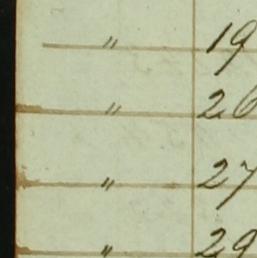 " 19
" 26
" 27
" 29